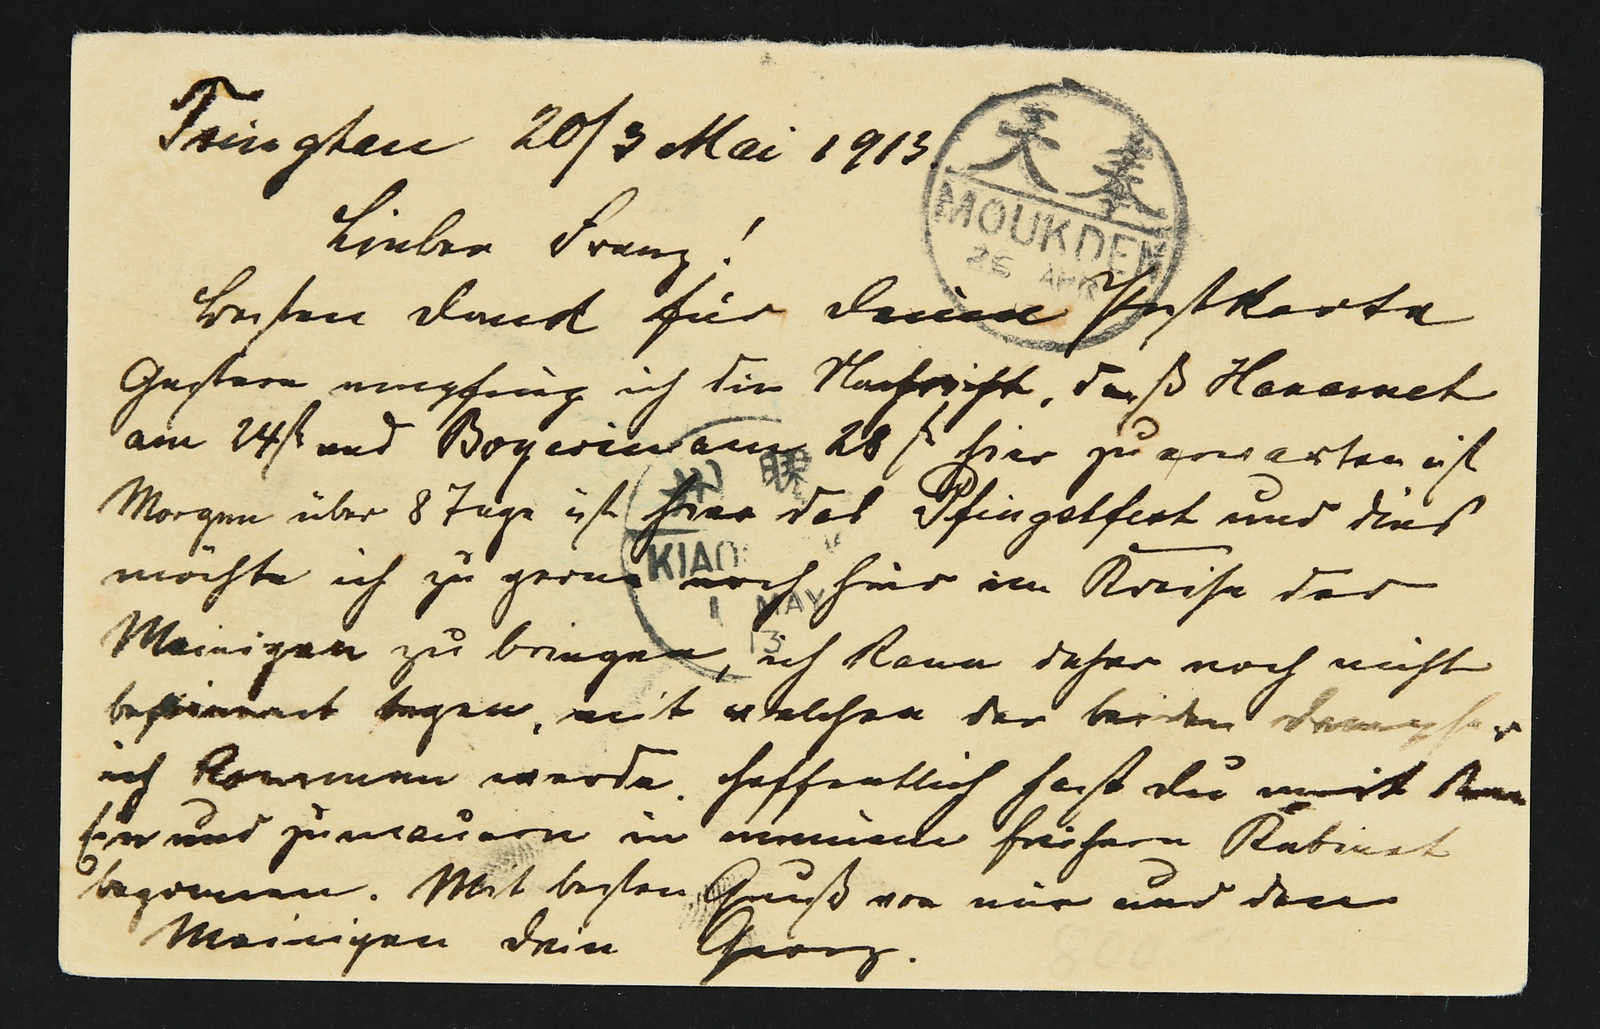 Tsingtau 20/3 Mai 1913.
Lieber Franz!
Besten Dank für Deine Postkarte
Gestern empfing ich die Nachricht, daß
am 24st und am 28st hier zu erwarten ist
Morgen über 8 Tage ist hier das Pfingstfest und dies
möchte ich zu gerne noch hier im Kreise der
Meinigen zu bringen, ich kann daher noch nicht
bestimmt sagen, mit welchen der beiden Dampfer
ich kommen werde. Hoffentlich hast Du mit
und in meinem frühern Kabinet
begonnen. Mit besten Gruß von mir und den
Meinigen Dein Georg.
天奉
MOUKDEN
26
膠
KIAO
1 MAY
13